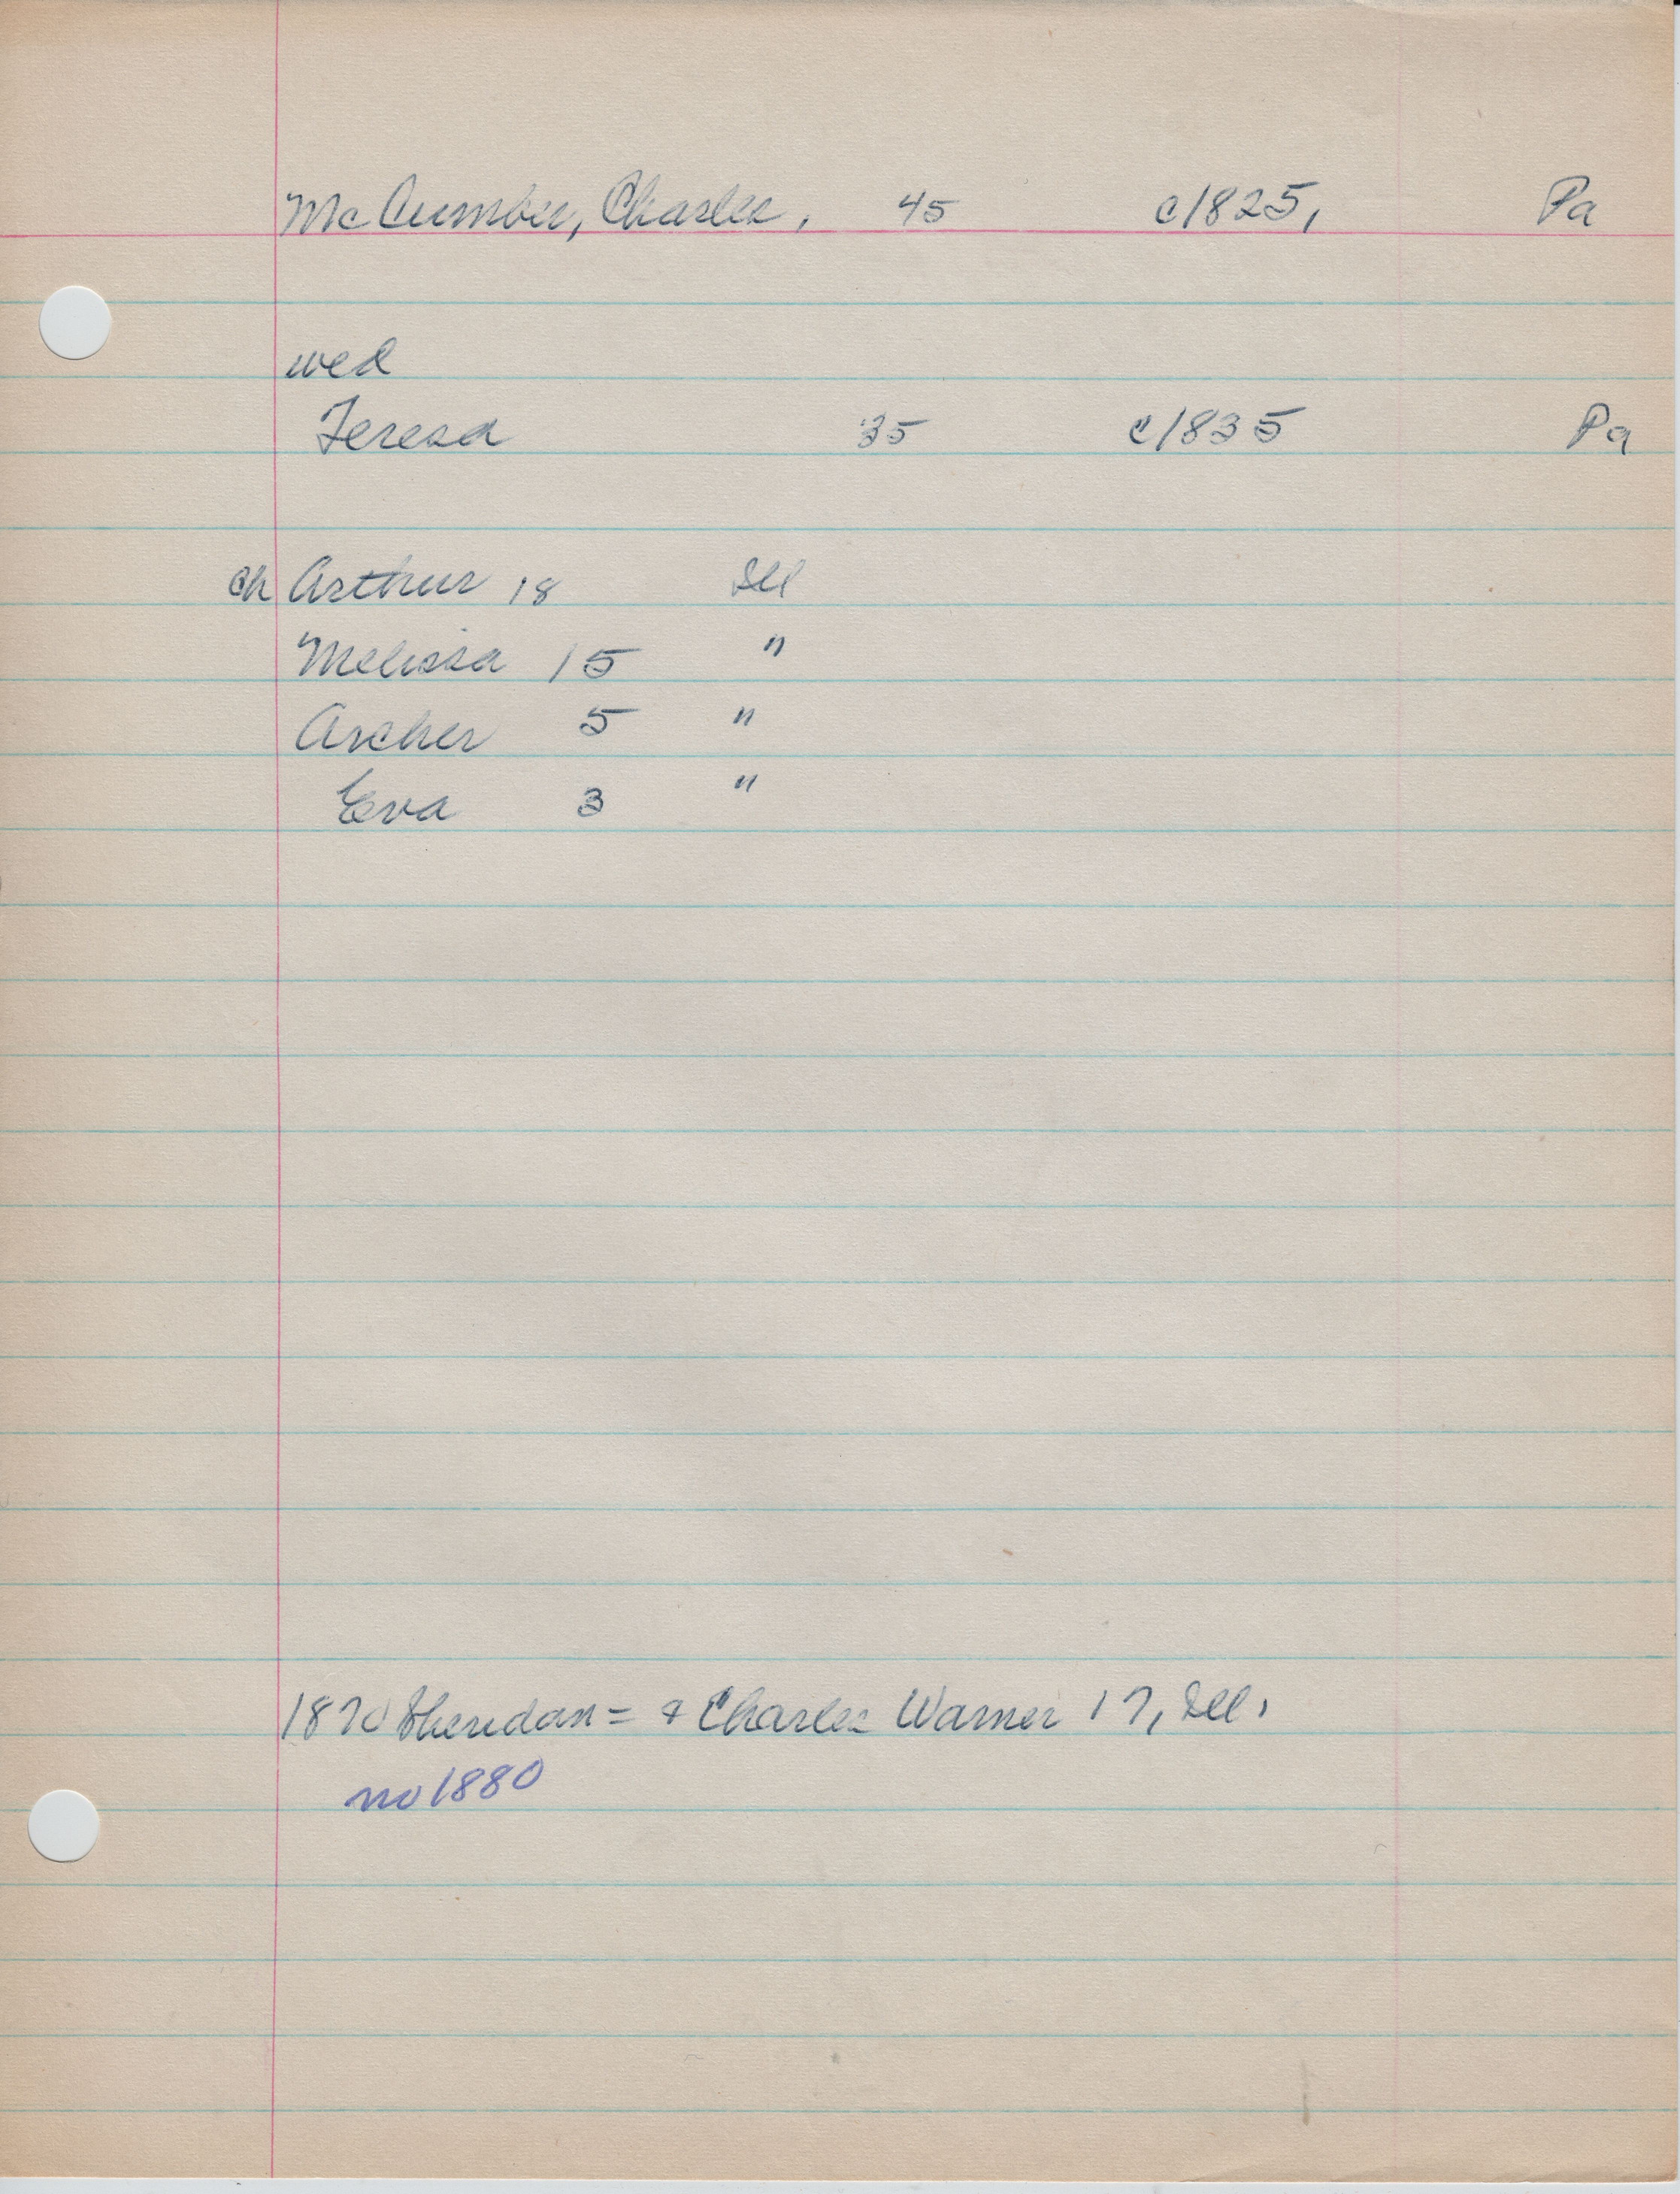 McCumber, Charles, 45 c1825, Pa
wed
Teresa 35 c1835 Pa
ch Arthur 18 Ill
Melissa 15 "
Archer 5 "
Eva 3 "
1870 Sheridan = & Charles Warner 17, Ill.
no 1880